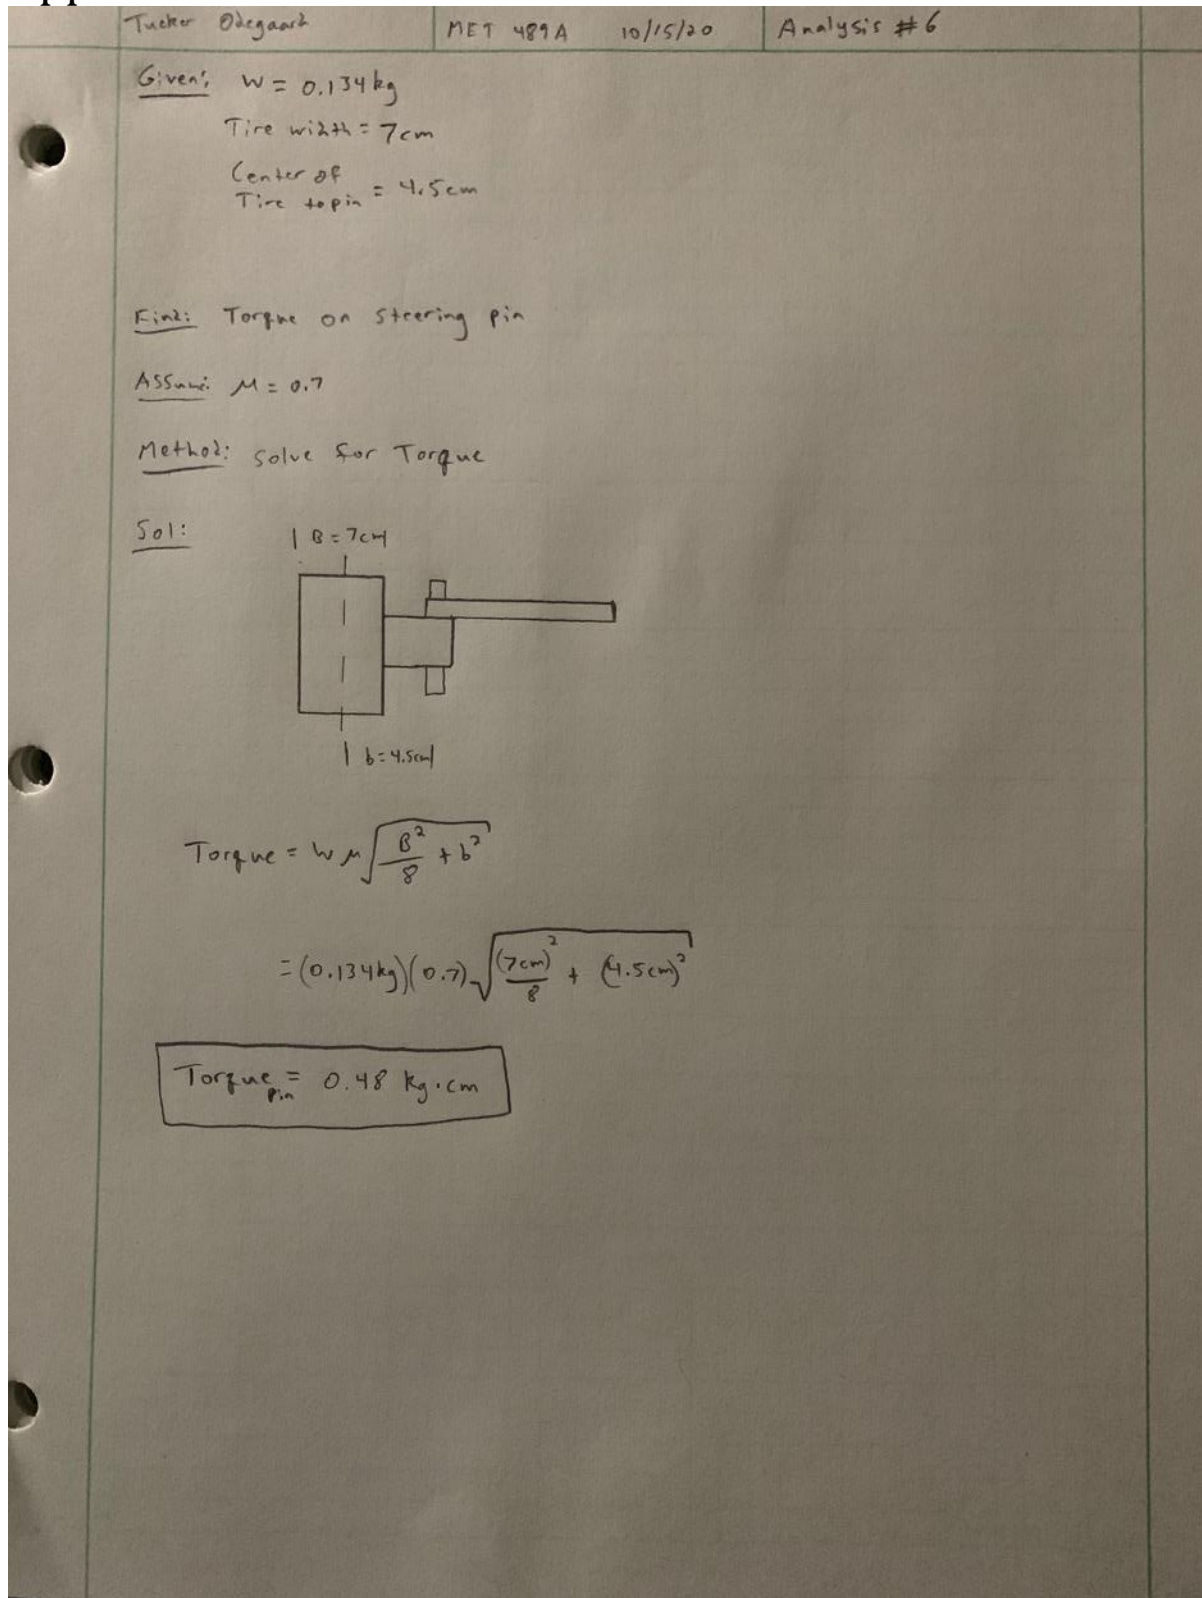 Tucker Odegaard MET 489A 10/15/20 Analysis #6
Given: W = 0.134 kg
Tire width = 7cm
Center of
Tire to pin = 4.5cm
Find: Torque on steering pin
Assume: μ = 0.7
Method: Solve for Torque
Sol:
B = 7cm
b = 4.5cm
Torque = W μ √(B²/8 + b²)
= (0.134kg)(0.7) √((7cm)²/8 + (4.5cm)²)
Torque pin = 0.48 kg·cm